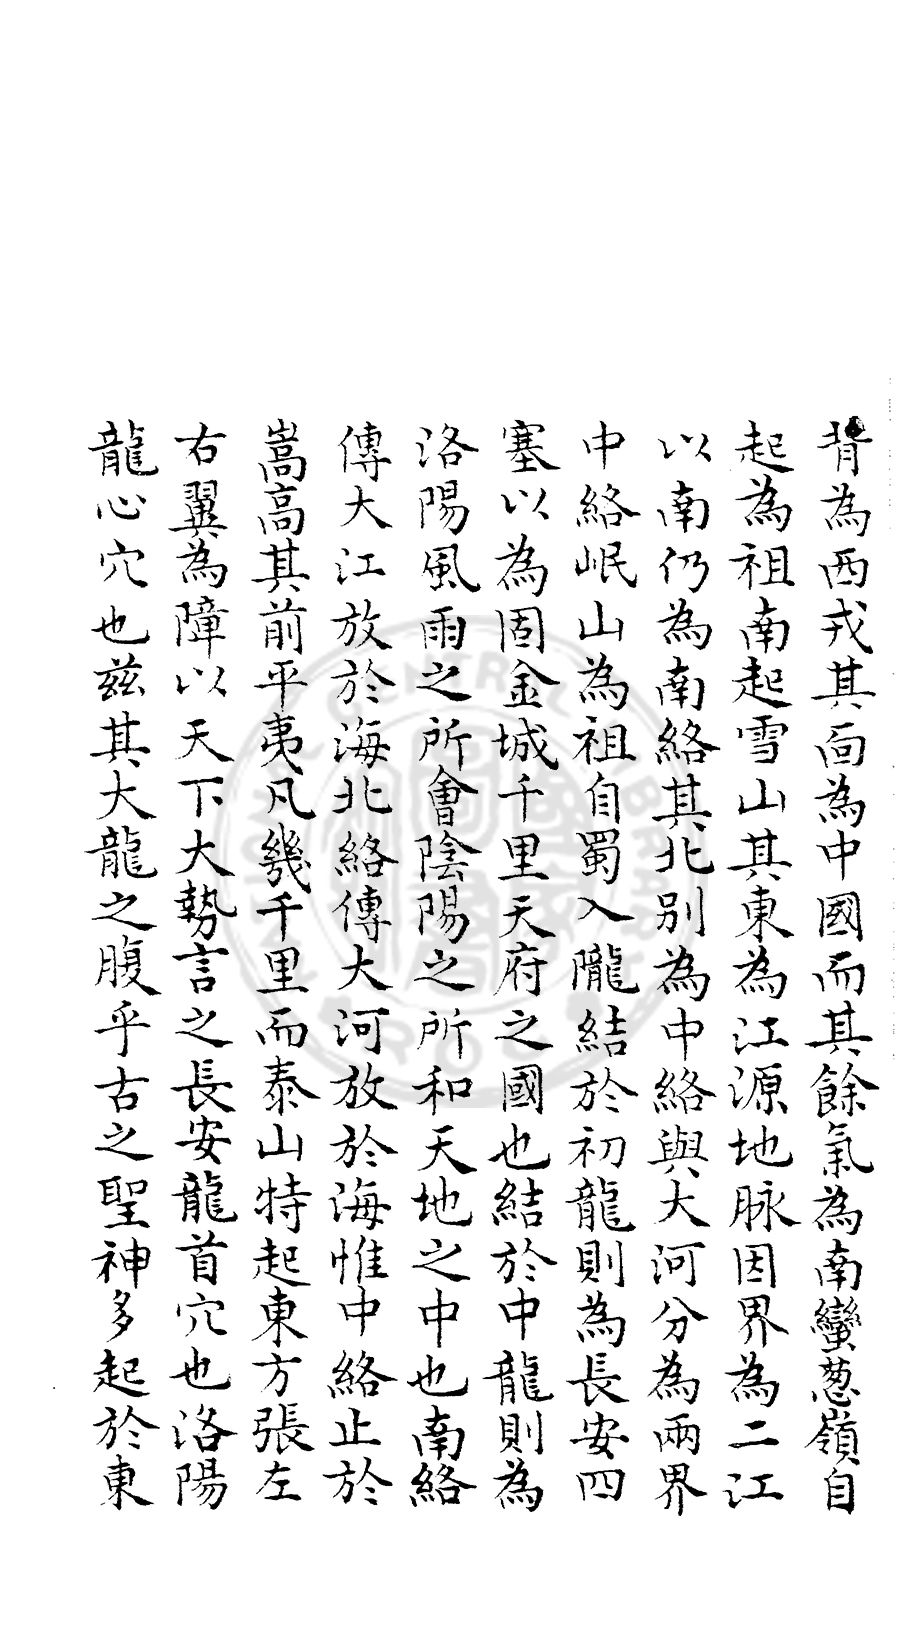 背為西戎其面為中國而其餘氣為南蠻葱嶺自
起為祖南起雪山其東為江源地脉因界為二江
以南仍為南絡其北別為中絡與大河分為兩界
中絡岷山為祖自蜀入隴結於初龍則為長安四
塞以為固金城千里天府之國也結於中龍則為
洛陽風雨之所會陰陽之所和天地之中也南絡
傳大江放於海北絡傳大河放於海惟中絡止於
嵩高其前平夷凡幾千里而泰山特起東方張左
右翼為障以天下大勢言之長安龍首穴也洛陽
龍心穴也兹其大龍之腹乎古之聖神多起於東
NATIONAL CENTRAL LIBRARY
R.O.C.